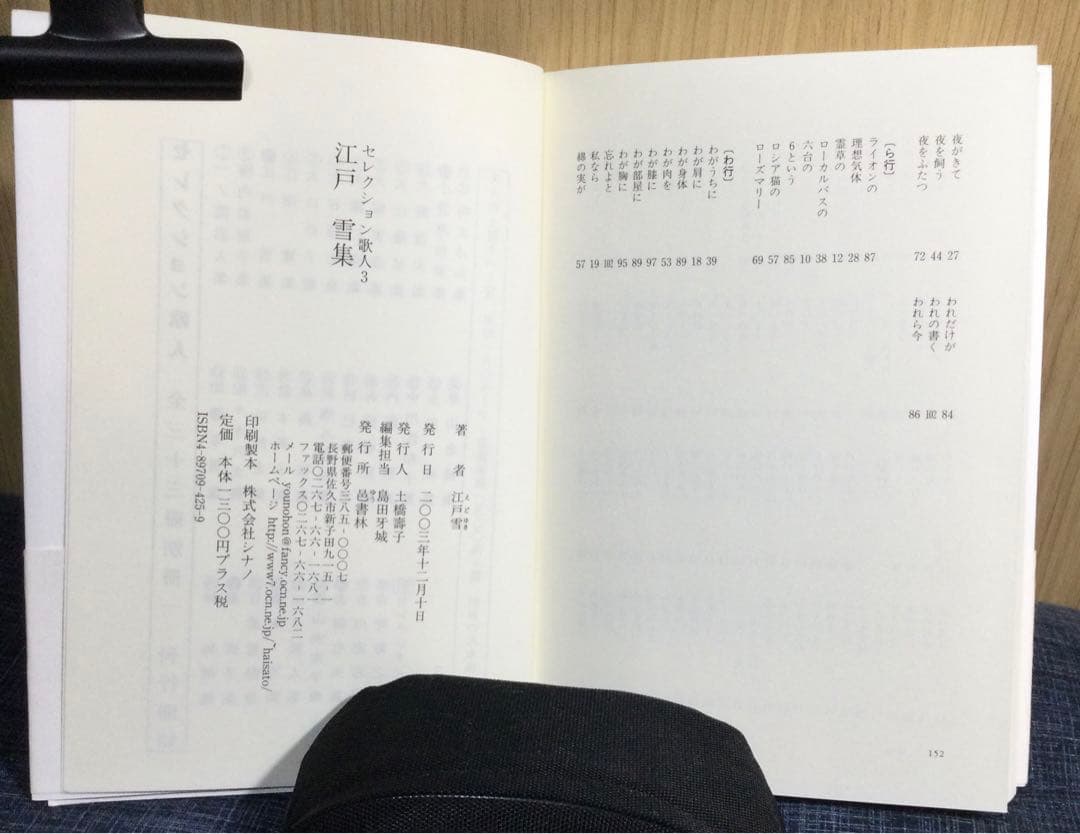 夜がきて 27
夜を飼う 44
夜をふたつ 72
〔ら行〕
ライオンの 87
理想気体 28
霊草の 12
ローカルバスの 38
六台の 10
6という 85
ロシア猫の 57
ローズマリー 69
〔わ行〕
わがうちに 39
わが肩に 18
わが身体 89
わが肉を 53
わが膝に 97
わが部屋に 89
わが胸に 95
忘れよと 102
私なら 19
綿の実が 57
われだけが 84
われの書く 102
われら今 86
152
セレクション歌人3
江戸 雪集
著者 江戸雪
えど ゆき
発行日 二〇〇三年十二月十日
発行人 土橋壽子
編集担当 島田牙城
発行所 邑書林
ゆう
郵便番号三八五-〇〇〇七
長野県佐久市新子田九一五-一
電話〇二六七-六六-一六八一
ファックス〇二六七-六六-一六八二
メール younohon@fancy.ocn.ne.jp
ホームページ http://www7.ocn.ne.jp/~haisato/
印刷製本 株式会社シナノ
定価 本体一三〇〇円プラス税
ISBN4-89709-425-9